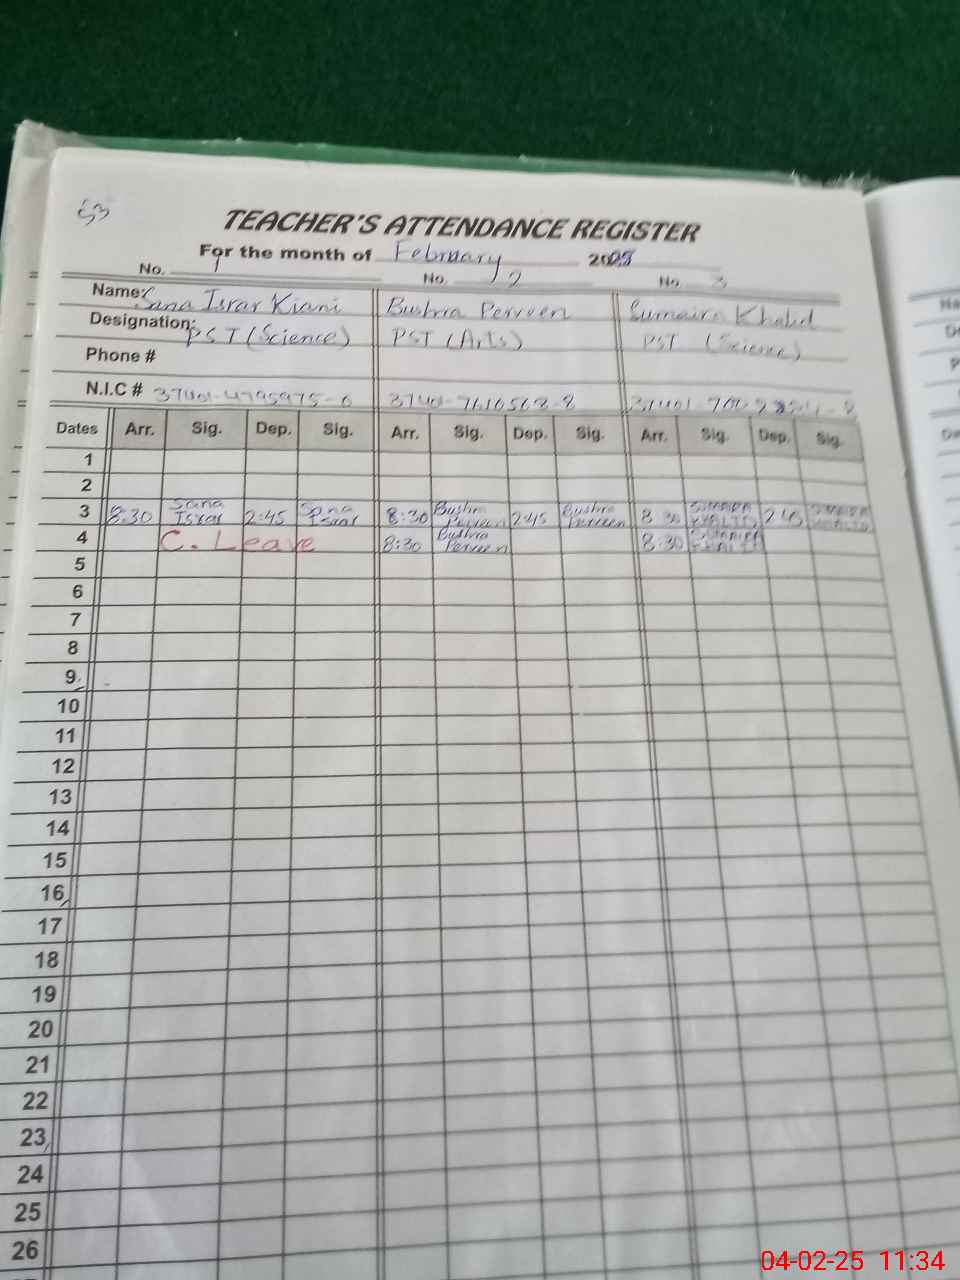 53
TEACHER'S ATTENDANCE REGISTER
For the month of February 2025
No. 1 No. 2 No. 3
Name: Sana Israr Kiani Bushra Perveen Sumaira Khalid
Designation: PST (Science) PST (Arts) PST (Science)
Phone #
N.I.C # 37401-4795975-0 37401-7610568-8
Dates Arr. Sig. Dep. Sig. Arr. Sig. Dep. Sig. Arr. Sig. Dep. Sig.
1
2
3 8:30 Sana Israr 2:45 Sana Israr 8:30 Bushra Perveen 2:45 Bushra Perveen 8:30 SUMAIRA KHALID SUMAIRA KHALID
4 C. Leave 8:30 Bushra Perveen 8:30 SUMAIRA KHALID
5
6
7
8
9
10
11
12
13
14
15
16
17
18
19
20
21
22
23
24
25
26
04-02-25 11:34